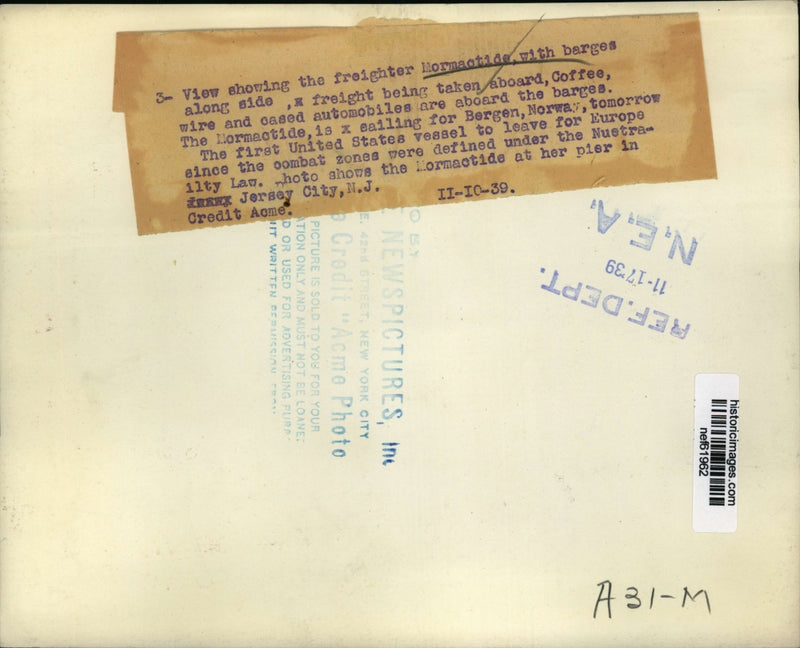 3- View showing the freighter Mormactide, with barges
along side ,x freight being taken aboard, Coffee,
wire and cased automobiles are aboard the barges.
The Mormactide, is x sailing for Bergen, Norway, tomorrow
The first United States vessel to leave for Europe
since the combat zones were defined under the Nuetra-
ilty Law. Photo shows the Mormactide at her pier in
Jersey City, N.J. 11-10-39.
Credit Acme.
O BY
NEWSPICTURES, Inc
E. 42nd STREET, NEW YORK CITY
Credit "Acme Photo
PICTURE IS SOLD TO YOU FOR YOUR
ATION ONLY AND MUST NOT BE LOANE
D OR USED FOR ADVERTISING PURP
WRITTEN PERMISSION FROM
N.E.A.
11-17-39
REF. DEPT.
historicimages.com
nef61962
A31-M